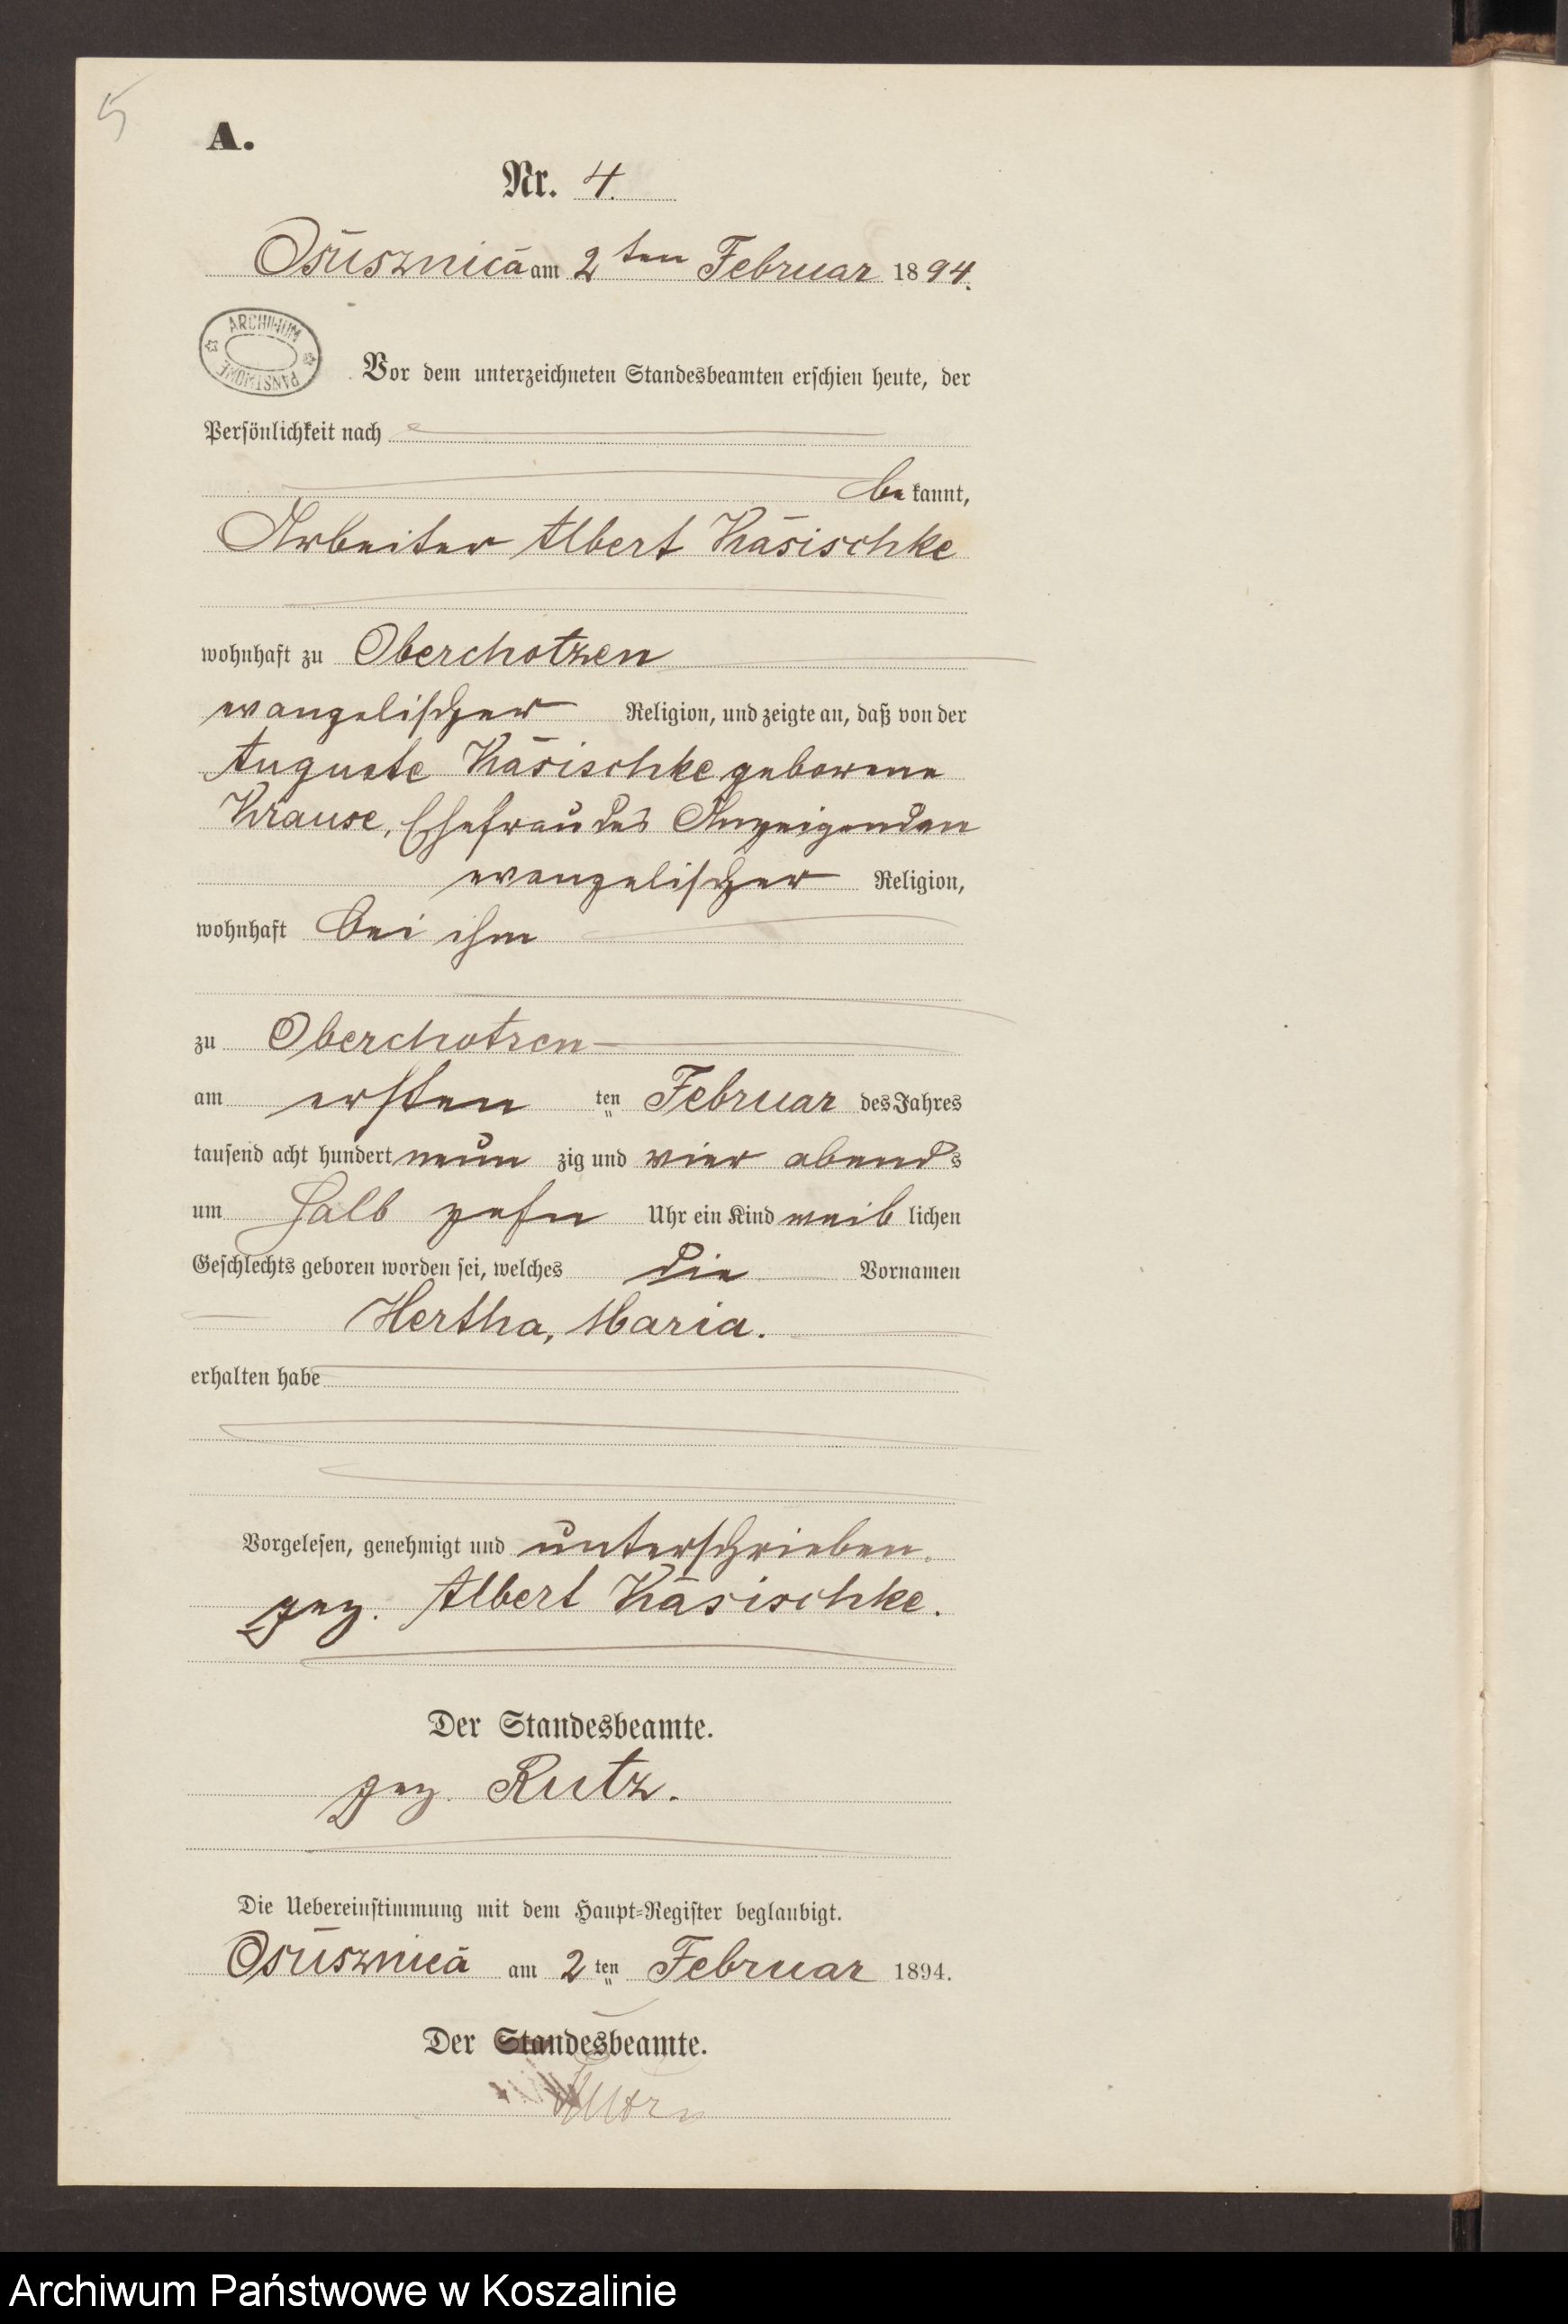 5
A.
Nr. 4.
Osusznica am 2ten Februar 1894.
ARCHIWUM
PAŃSTWOWE
Vor dem unterzeichneten Standesbeamten erschien heute, der
Persönlichkeit nach
bekannt,
Arbeiter Albert Käsischke
wohnhaft zu Oberchotzen
evangelischer Religion, und zeigte an, daß von der
Auguste Käsischke geborene
Krause, Ehefrau des Anzeigenden
evangelischer Religion,
wohnhaft bei ihm
zu Oberchotzen
am ersten ten Februar des Jahres
tausend acht hundert neun zig und vier abends
um halb zehn Uhr ein Kind weiblichen
Geschlechts geboren worden sei, welches die Vornamen
Hertha, Maria.
erhalten habe
Vorgelesen, genehmigt und unterschrieben.
gez. Albert Käsischke.
Der Standesbeamte.
gez. Rutz.
Die Uebereinstimmung mit dem Haupt-Register beglaubigt.
Osusznica am 2ten Februar 1894.
Der Standesbeamte.
Archiwum Państwowe w Koszalinie